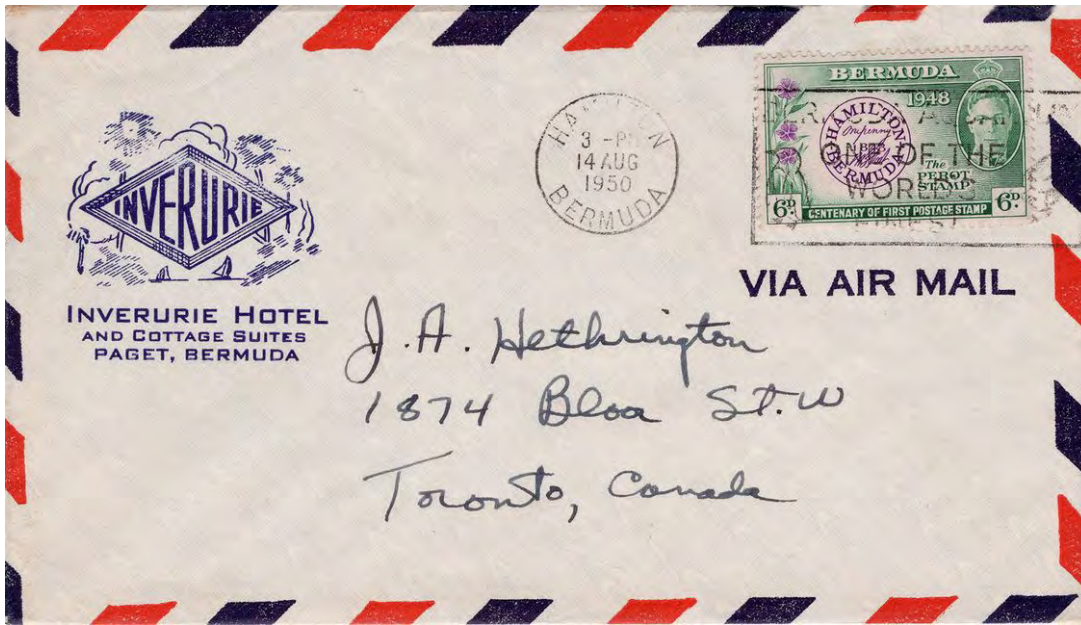 INVERURIE
INVERURIE HOTEL
AND COTTAGE SUITES
PAGET, BERMUDA
HAMILTON
3 -P
14 AUG
1950
BERMUDA
BERMUDA
1948
HAMILTON
BERMUDA
The
PEROT
STAMP
6D
CENTENARY OF FIRST POSTAGE STAMP
6D
ONE OF THE
WORLD'S
FINEST
VIA AIR MAIL
J. A. Hethrington
1874 Bloor St. W
Toronto, Canada